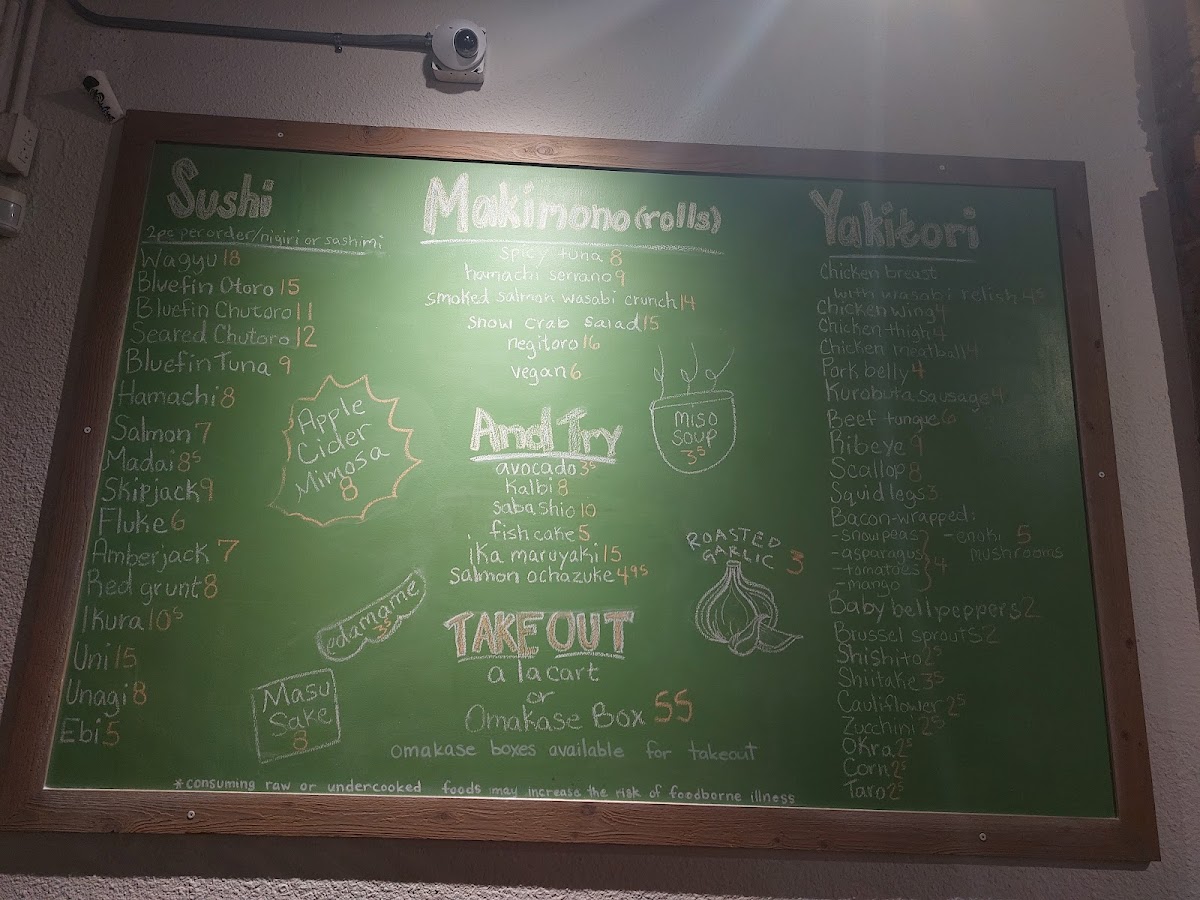 Sushi
2pc per order/nigiri or sashimi
Wagyu 18
Bluefin Otoro 15
Bluefin Chutoro 11
Seared Chutoro 12
Bluefin Tuna 9
Hamachi 8
Salmon 7
Madai 8⁵
Skipjack 9
Fluke 6
Amberjack 7
Red grunt 8
Ikura 10⁵
Uni 15
Unagi 8
Ebi 5
Apple
Cider
Mimosa
8
edamame
3⁵
Masu
Sake
8
Makimono (rolls)
spicy tuna 8
hamachi serrano 9
smoked salmon wasabi crunch 14
snow crab salad 15
negitoro 16
vegan 6
And Try
avocado 3⁵
kalbi 8
saba shio 10
fish cake 5
ika maruyaki 15
salmon ochazuke 4⁹⁵
MISO
SOUP
3⁵
ROASTED
GARLIC 3
TAKE OUT
a la cart
or
Omakase Box 55
omakase boxes available for takeout
*consuming raw or undercooked foods may increase the risk of foodborne illness
Yakitori
Chicken breast
with wasabi relish 4⁵
Chicken wing 4
Chicken thigh 4
Chicken meatball 4
Pork belly 4
Kurobuta sausage 4
Beef tongue 6
Ribeye 9
Scallop 8
Squid legs 3
Bacon-wrapped:
-snowpeas
-asparagus
-tomatoes
-mango
4
-enoki 5
mushrooms
Baby bell peppers 2
Brussel sprouts 2
Shishito 2⁵
Shiitake 3⁵
Cauliflower 2⁵
Zucchini 2⁵
Okra 2⁵
Corn 2⁵
Taro 2⁵